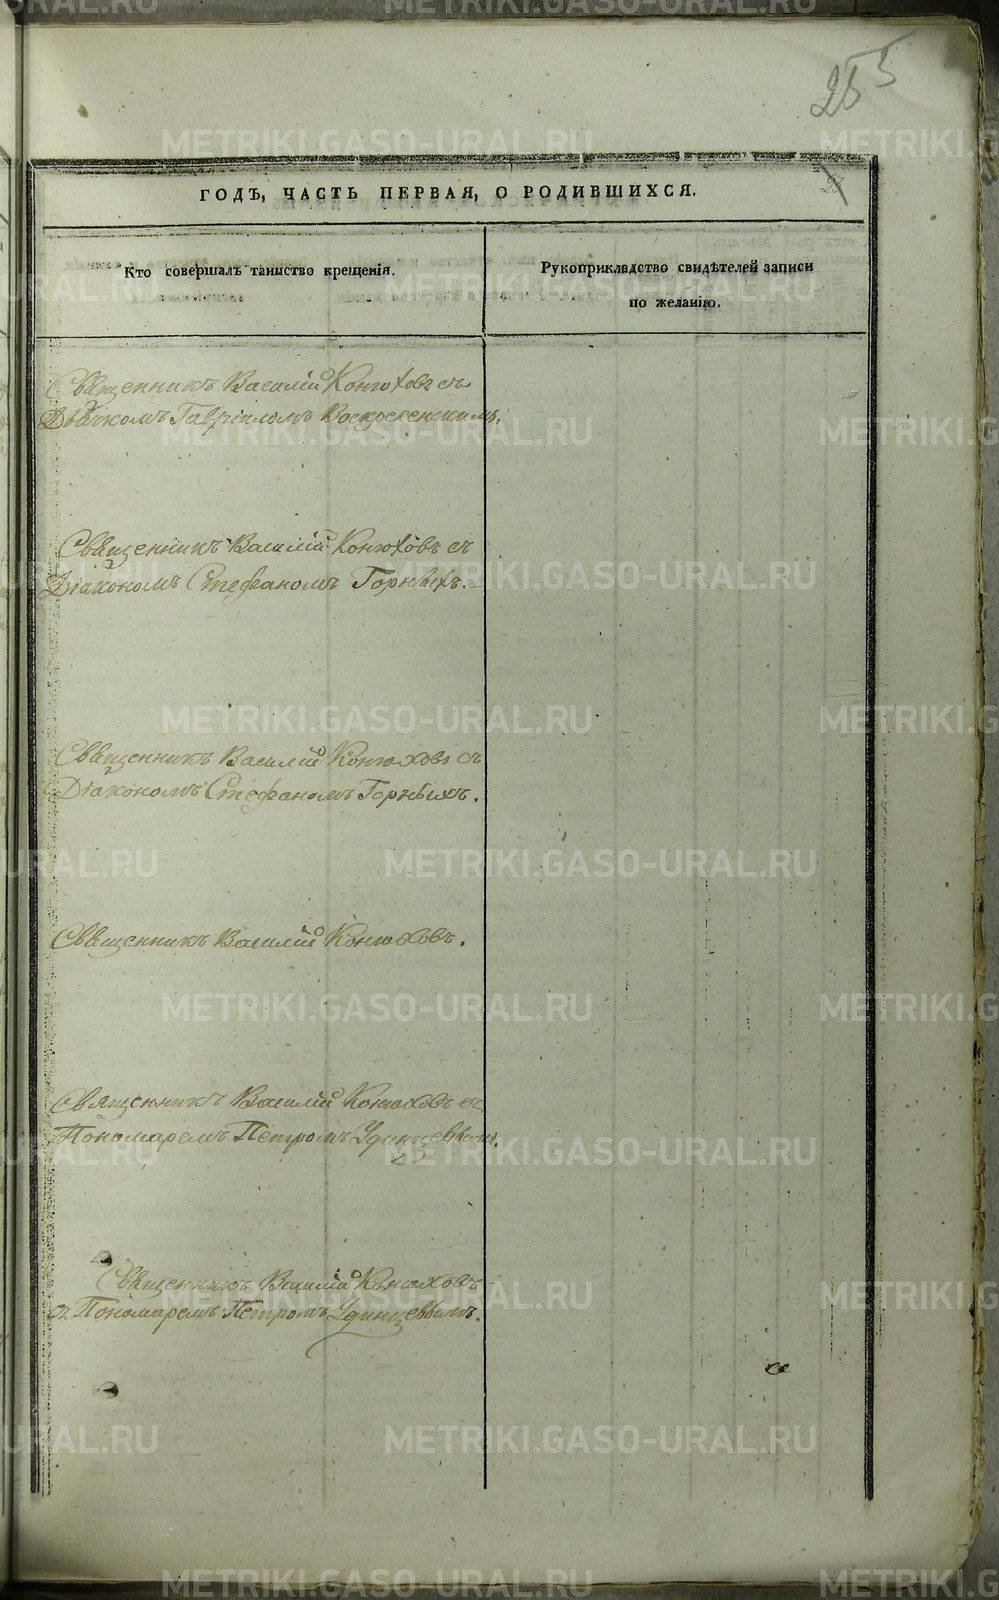 255
23
ГОДЪ, ЧАСТЬ ПЕРВАЯ, О РОДИВШИХСЯ.
Кто совершалъ таинство крещенія.
Рукоприкладство свидѣтелей записи
по желанію.
Священникъ Василій Конюховъ съ
Дьячкомъ Гавріиломъ Воскресенскимъ.
Священникъ Василій Конюховъ съ
Діакономъ Стефаномъ Горныхъ.
Священникъ Василій Конюховъ съ
Діакономъ Стефаномъ Горныхъ.
Священникъ Василій Конюховъ.
Священникъ Василій Конюховъ съ
Пономаремъ Петромъ Удинцевымъ.
Священникъ Василій Конюховъ
съ Пономаремъ Петромъ Удинцевымъ.
METRIKI.GASO-URAL.RU